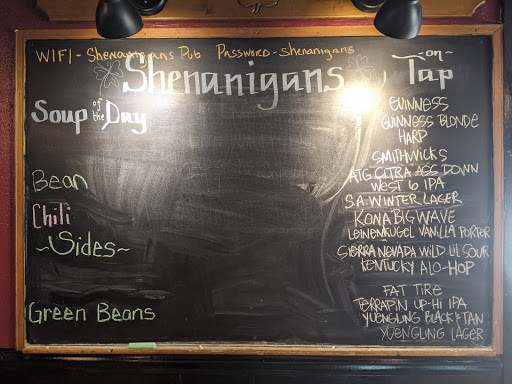 WIFI - Shenanigans Pub Password - Shenanigans
Shenanigans
Soup of the Day
Bean
Chili
~Sides~
Green Beans
-on-
Tap
GUINNESS
GUINNESS BLONDE
HARP
SMITHWICKS
ATG CITRA ASS DOWN
WEST 6 IPA
S.A. WINTER LAGER
KONA BIG WAVE
LEINENKUGEL VANILLA PORTER
SIERRA NEVADA WILD LIL SOUR
KENTUCKY ALO-HOP
FAT TIRE
TERRAPIN UP-HI IPA
YUENGLING BLACK & TAN
YUENGLING LAGER